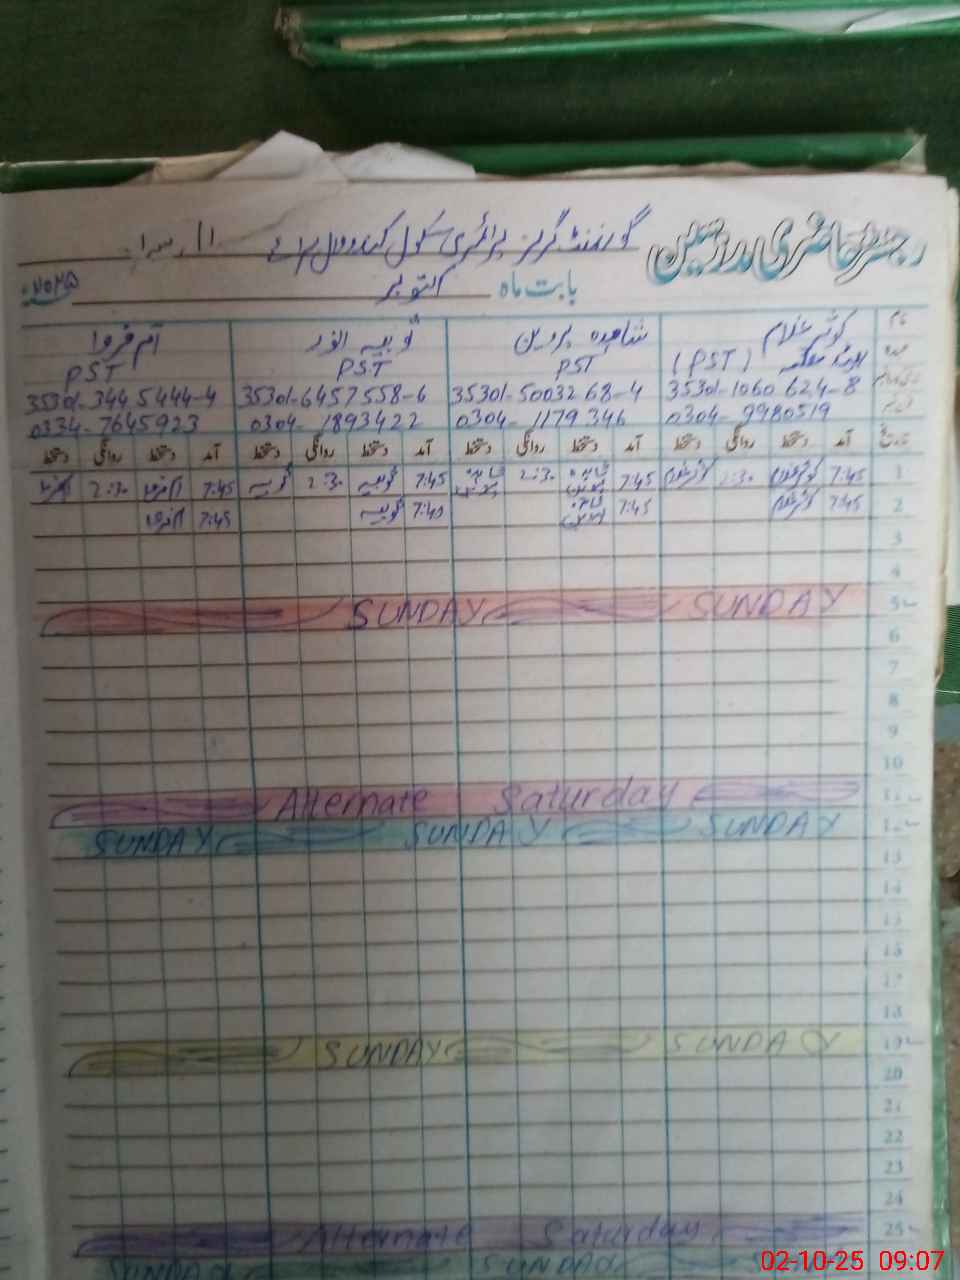 رجسٹر حاضری مدرسین گورنمنٹ گرلز پرائمری سکول
بابت ماہ اکتوبر ۲۰۲۵ء
نام کوثر غلام شاہدہ پروین ثوبیہ انور ام فروا
عہدہ (PST) PST PST PST
35301-1060624-8 35301-5003268-4 35301-6457558-6 35301-3445444-4
0304-9980519 0304-1179346 0304-1893422 0334-7645923
تاریخ آمد دستخط روانگی دستخط آمد دستخط روانگی دستخط آمد دستخط روانگی دستخط آمد دستخط روانگی دستخط
1 7:45 کوثر غلام 2:30 کوثر غلام 7:45 شاہدہ پروین 2:30 شاہدہ پروین 7:45 ثوبیہ 2:30 ثوبیہ 7:45 ام فروا 2:30 ام فروا
2 7:45 کوثر غلام 7:45 شاہدہ پروین 7:45 ثوبیہ 7:45 ام فروا
3
4
5 SUNDAY SUNDAY
6
7
8
9
10
11 Alternate Saturday
12 SUNDAY SUNDAY SUNDAY
13
14
15
16
17
18
19 SUNDAY SUNDAY
20
21
22
23
24
25 Alternate Saturday
SUNDAY SUNDAY
02-10-25 09:07